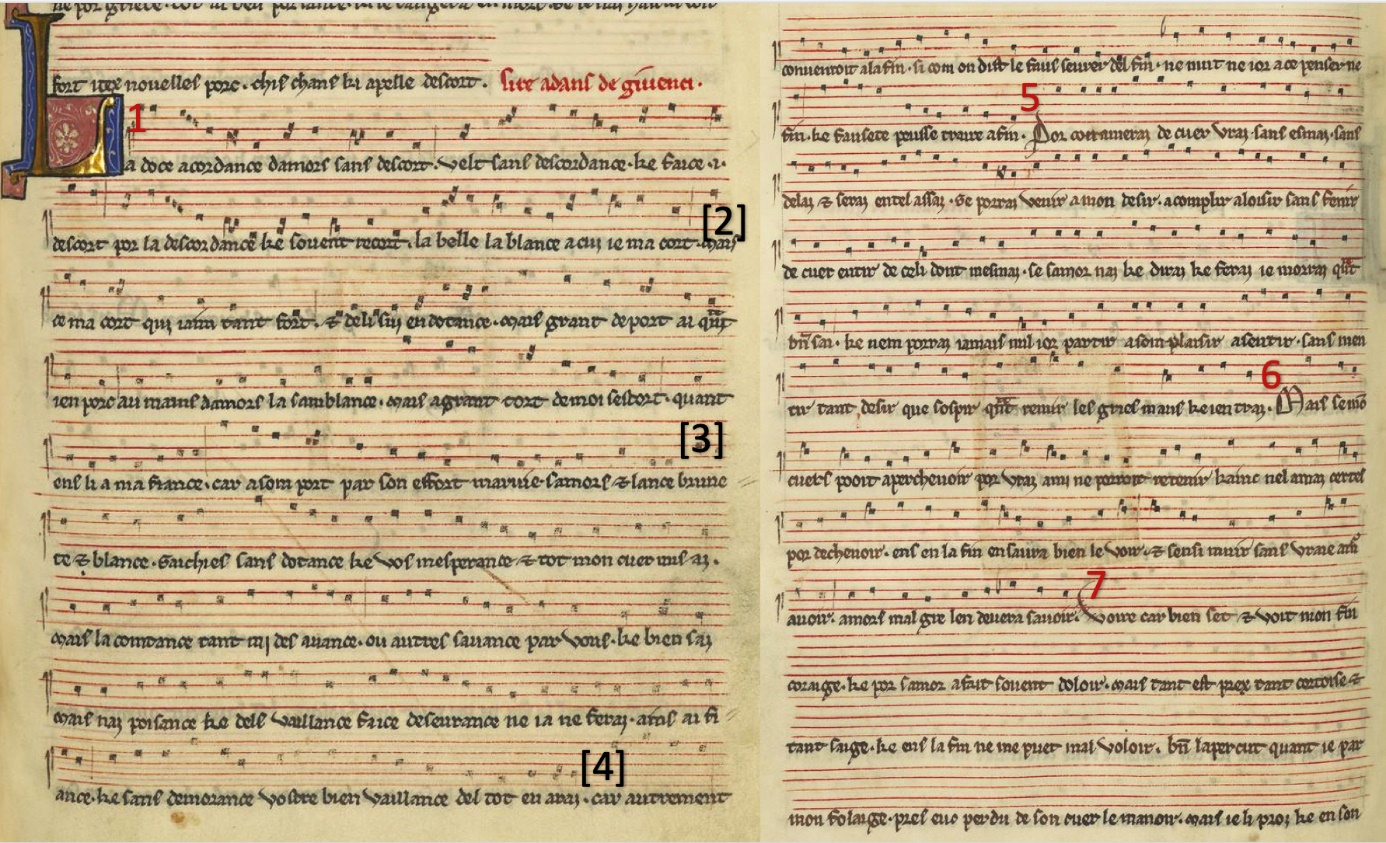 ne por griete
fort itex nouelles porc . chis chans ki apelle descort . sire adans de giuenci .
1
La doce acordance damors sans descort . velt sans descordance . ke face . i .
[2]
descort por la descordance ke souent recort . la belle la blance a cui ie ma cort . mais
ce ma cort qui iaim tant fort . & de li sui en dotance . mais grant deport ai qnt
ien porc au mains damors la samblance . mais a grant tort de moi sestort . quant
[3]
ens li a ma fiance . car a som port par son effort samors & lance brune
te & blance . saichies sans dotance ke vos mesperance & tot mon cuer mis ai .
mais la comtance tant mi des auance . ou autres sauance par vous . ke bien sai
mais nai poisance ke dele vaillance face deseurance ne ia ne ferai . ains ai fi
[4]
ance . ke sans demorance vostre bien vaillance del tot en arai . car autrement
conuenroit a la fin . si com on dist le faus del fin . ne muit ne ior a ce penser ne
5
fin . ke fausete peusse treure a fin . Por coi amerai de cuer vrai sans esmai . sans
delai & serai en tel assai . se porrai venir a mon desir . a complir a loisir sans fenir
de cuer entir de celi dont mesmai . se samor nai ke dirai ke ferai ie morrai qnt
bn sai . ke nem porrai iamais nul ior partir a som plaisir asentir . sans men
6
tir tant desir que sospir qnt remir les gries maus ke ien trai . Mais se mo
cuers pooit aperchenoir por vrai ami ne porroit retenir kainc nel amai certes
por dechenoir . ens en la fin en saura bien le voir . & sensi muir sans vraie
7
auoir . amors mal gre len deuera sauoir . Voire car bien set & voit mon fin
coraige . ke por samor a fait souent doloir . mais tant est prex tant cortoise &
tant saige . ke ens la fin ne me puet mal voloir . bn lapercut quant ie par
mon folaige . pres euc perdu de son cuer le manoir . mais ie li proi ke en son